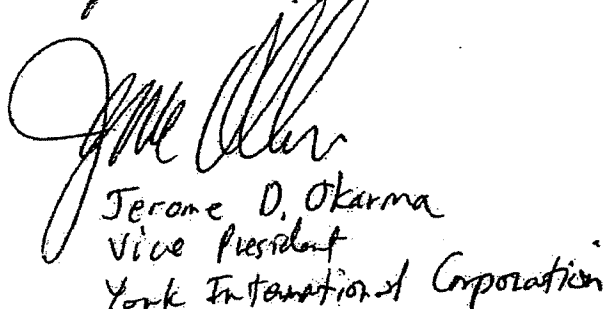 Jerome D. Okarma
Vice President
York International Corporation